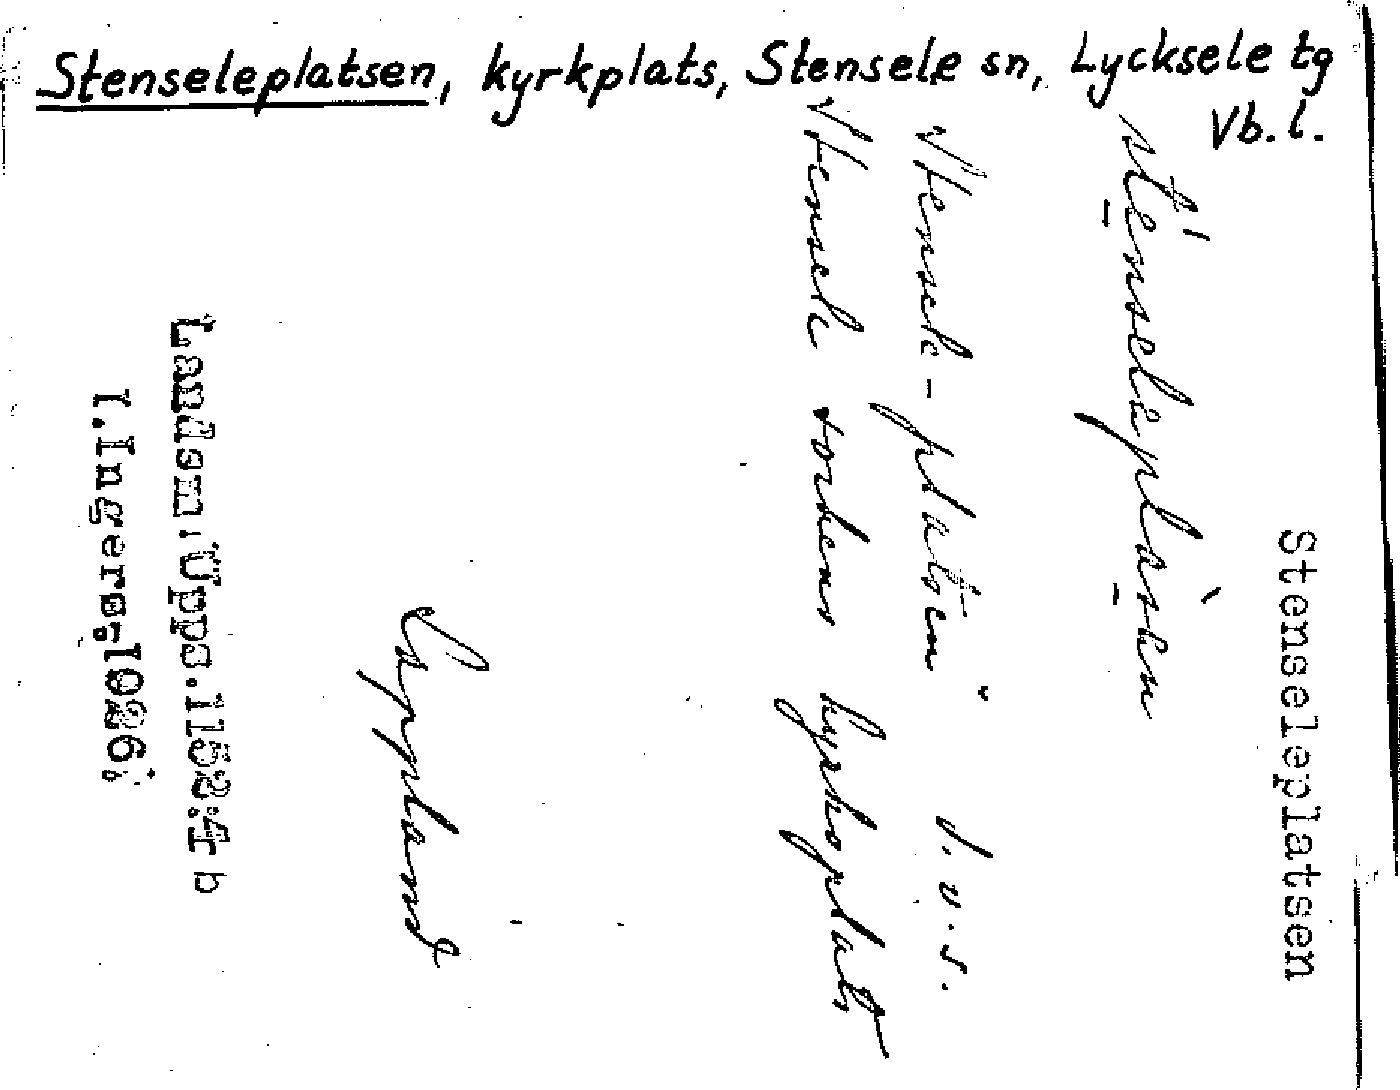 Stenseleplatsen, kyrkplats, Stensele sn, Lycksele tg
Vb. l.
Stenseleplatsen
sténseleplàsen
Stensele-platsen" d.v.s.
Stensele sockens kyrkoplats
Lappland
Landsm. Upps. 1152:4 b
I. Ingers, 1926,